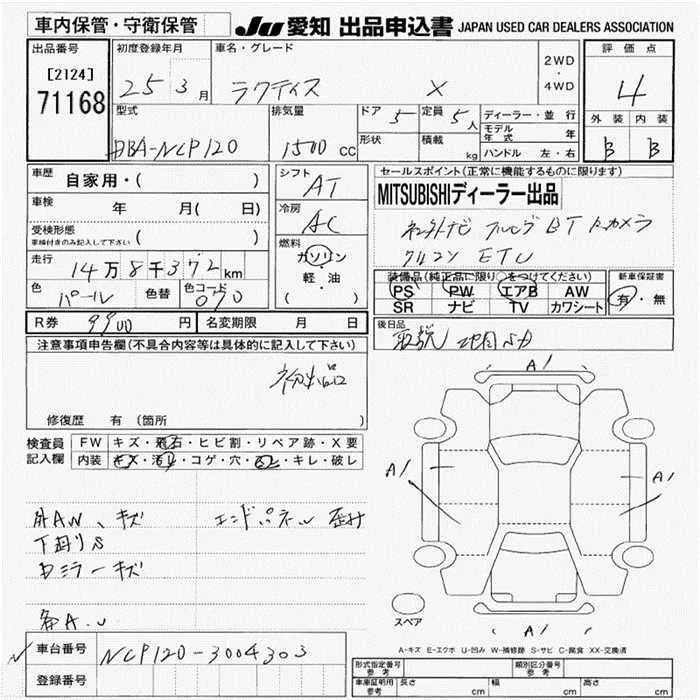 車内保管・守衛保管 JU 愛知 出品申込書 JAPAN USED CAR DEALERS ASSOCIATION
出品番号 初度登録年月 車名・グレード 2WD ・ 4WD 評価点
[2124]
71168 25 3月 ラクティス X 4
型式 排気量 ドア 5 定員 5人 ディーラー・並行 外装 内装
DBA-NCP120 1500 cc 形状 積載 kg モデル年式 年 B B
ハンドル 左・右
車歴 自家用・( ) シフト AT セールスポイント(正常に機能するものに限ります)
MITSUBISHIディーラー出品
車検 年 月( 日) 冷房 AC
受検形態 ( )
車検付きのみ記入して下さい
BT カメラ
ETC
燃料 ガソリン 軽・油 ( )
走行 14万8千372km
装備品(純正品に限り○をつけてください) 新車保証書
PS PW エアB AW 有・無
SR ナビ TV カワシート
色 パール 色替 色コード 070
R券 9900円 名変期限 月 日 後日品
注意事項申告欄(不具合内容等は具体的に記入して下さい)
初出品
修復歴 有 (箇所
検査員記入欄 FW キズ・飛石・ヒビ割・リペア跡・X要
内装 キズ・汚レ・コゲ・穴・スレ・キレ・破レ
A1
A1 A1
A1
外AW、キズ エンドパネル 歪み
下廻りS
ミラーキズ
各A.U
スペア
A-キズ E-エクボ U-凹み W-補修跡 S-サビ C-腐食 XX-交換済
車台番号 NCP120-3004303
登録番号
形式指定番号 参考 類別区分番号 参考
車庫証明用 参考 長さ cm 幅 cm 高さ cm